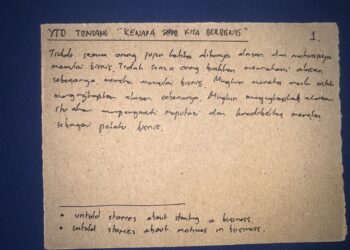 YTD TENTANG "KENAPA KITA BERBISNIS" 1.
Tidak semua orang jujur ketika ditanya alasan dan motivasinya
memulai bisnis. Tidak semua orang bahkan memahami alasan
sebenarnya mereka memulai bisnis. Mungkin mereka malu untuk
mengungkapkan alasan sebenarnya. Mungkin mengungkapkan alasan
itu akan mempengaruhi reputasi dan kredibilitas mereka
sebagai pelaku bisnis.
• untold stories about starting a business.
• untold stories about motives in business.